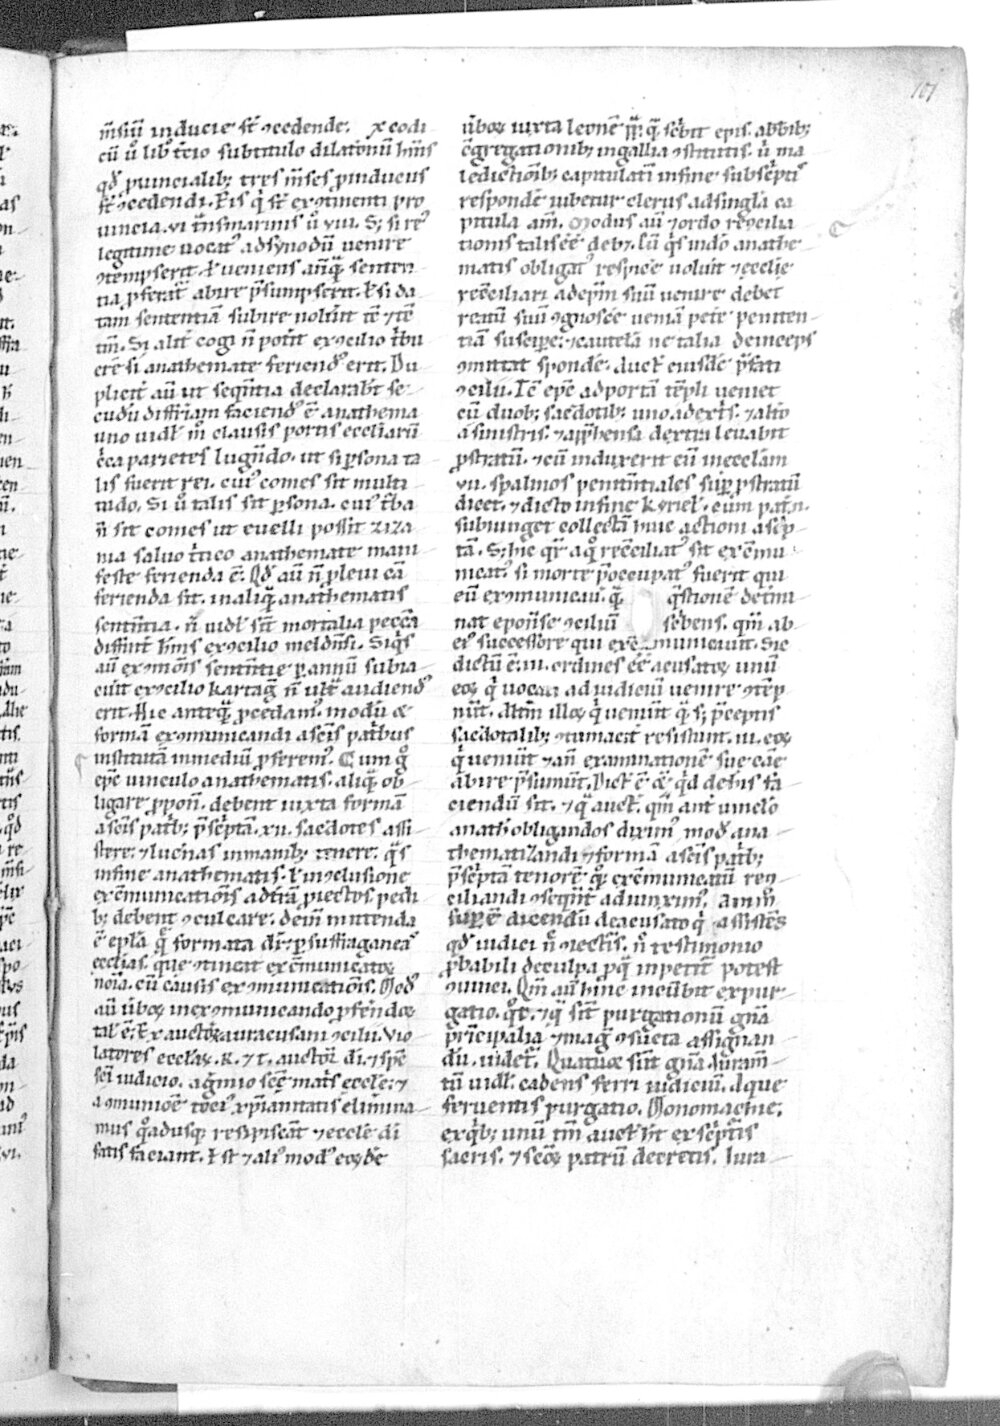 101
m̄siū inducie st̄ ↄcedende. Ex codi
cū ỻ lib᷒ t̄cio sub titulo dilatonū hm̄s
qd̄ ꝓuincialib; tres m̄ses ꝓinducus
st̄ ↄcedendi. Eis q̇ st̄ ex ↄtinenti pro
uincia. vi t̄nsmarinis ū viii. S; si re᷒
legitime uocat᷒ ad synodū uenire
ↄtempserit. ł ueniens anq̄ senten
tia ꝓferat᷒ abire p̄sumpserit. ł si da
tam sententiā subire noluīt
tm̄. Si alit̄ cogi n̄ pot̄it ex ↄcilio t̄bu
cre᷒ si anathemate feriend᷒ erit. Du
plicit̄ aū ut seqn̄tia declarab̄t se
cūdū diffin̄am faciend᷒ ē anathema
uno uidł m̊ clausis portis eccłiarū
c̄ca parietes lugn̄do. ut si ꝑsona ta
lis fuerit rei. cui᷒ comes sit multi
tudo. Si ū talis sit ꝑsona. cui᷒ t̄ba
n̄ sit comes ut euelli possit ziza
nia saluo t̄tico anathemate mani
feste ferienda ē. Qd̄ aū n̄ ꝓ leui cā
ferienda sit. in aliq̄ anathematis
sentn̄tia. n̄ uidł sīt mortalia peccā
diffinit̄ hm̄s ex ↄcilio meldn̄si. Siq̇s
aū ex ↄmōis sentn̄tie ꝑ annū subia
cuīt ex ↄcilio kartaḡ n̄ ult̄ audiend᷒
erit. Hic anteq̄ ꝓcedam᷒. modū &
formā exↄmunicandi a sc̄is patribus
institutā in mediū ꝓferem᷒. Cum q̊
epc̄ uinculo anathematis. aliq̄ ob
ligare ꝓpon̄. debent iuxta formā
a sc̄is patib; p̄sc̄ptā. xii. sac̄dotes assi
stere. ⁊ luc̄nas in manib; tenere. q̄s
in fine anathematis. ł in ↄclusione
exↄ̄municationis ad t̄rā ꝓiectas pedi
b; debent ↄculcare. dein mittenda
ē epłā q̄ formata dr̄. ꝑ suffraganeas
eccłias. que ↄtineat exↄ̄municatoꝝ
noı̄a. cū causis exↄmunicationis. Mod᷒
aū ūboꝝ in exↄmunicando ꝓfen̄doꝝ
tał ē. Ex auctor̄ aurasicani ↄcilii. Vio
latores eccłaꝝ. R. ⁊ t. auctor̄. di. ⁊ sp̄c
sc̄i iudicio. a gm̄io sc̄e matis eccłe. ⁊
a ↄmunioē toci᷒ xp̄ianitatis elimina
mus q̊adusq; resipiscāt ⁊ eccłe di
satis faciant. Est ⁊ ali᷒ mod᷒ eoꝝdē
ūboꝝ iuxta leonē ꝑꝑ. q̄ sc̄bit epis. abbib;
ↄ̄gregationib; in gallia ↄstitutis. ū ma
ledictionib; capitulatī in fine subsc̄ptis
respondē iubetur clerus ad singła ca
pitula am̄. Modus aū ⁊ ordo recↄcilia
tionis talis ēē deb;. Cū q̇s uīclo anathe
matis obligat᷒ respicē uolūit ⁊ eccłie
recↄciliari ad ep̄m suū uenire debet
reatū suū ↄgnoscē ueniā petē peniten
tiā suscipe. ⁊ cautelā ne talia deinceps
ↄmittat spondē. auct̄ eiusdē p̄fati
ↄcilii. Tc̄ epc̄ ad portā tēpłi ueniet
cū duob; sac̄dotib; uno a dext̄s. ⁊ alio
a sinistris. ⁊ app̄hensa dextra leuabit
ꝓstratū. ⁊ cū induxerit eū in eccłam
vii. psalmos penitn̄tiales sup ꝓstratū
dicet. ⁊ dicto in fine kyrieł. cum pat̄n̄.
subiunget collectā huic actioni ascp̄
tā. S; hic qr̄ a q̊ recↄciliat᷒ sit exↄmu
nicat᷒. si morte p̄occupat᷒ fuerit qui
eū exↄmunicauı̄. q̄ q̄stionē detmi
nat eponse ↄciliū scbens. qm̄ ab
ei᷒ successore qui exↄ̄municauit. Sic
dictū ē. iii. ordines ēē accusatoꝝ unū
eoꝝ q̇ uocati ad iudiciū uenire ↄtēp
nūt. Altm̄ illoꝝ q̇ ueniūt q̄ s; p̄ceptis
sac̄dotalib; ↄtumacit̄ resistunt. iii. eoꝝ
q̇ ueniūt ⁊ an̄ examinationē sue cāe
abire p̄sumūt. Dict᷒ ē & q̇d de his fa
ciendū sit. ⁊ q̄ auct̄. qm̄ an̄t uinclō
anath̄ obligandos dixim᷒ mod᷒ ana
thematizandi ⁊ formā a sc̄is patib;
p̄sc̄ptā tenorē q̊ꝫ exↄ̄municatū recↄ
ciliandi ↄseqn̄t adiunxim᷒. Am̄m̄
sup ē dicendū de accusato q̇ assistēs
qd̄ iudici n̄ ↄfess᷒. n̄ testimonio
ꝓbabili de culpa p̄q̄ inpetit̄ potest
ↄuinci. Qm̄ aū hinc incūbit expur
gatio. q̊t. ⁊ q̄ sīt purgationū gn̄a
pr̄incipalia ⁊ magis ↄsueta assignan
dū. uidet̄. Quatuor sūt gn̄a iuram̄
tū uidł. cadens ferri iudiciū. Aque
feruentis purgatio. Monomachie;
ex q̇b; unū tm̄ auct̄ hīt ex sc̄ptis
sacris. ⁊ sc̄oꝝ patrū decretis. Iura